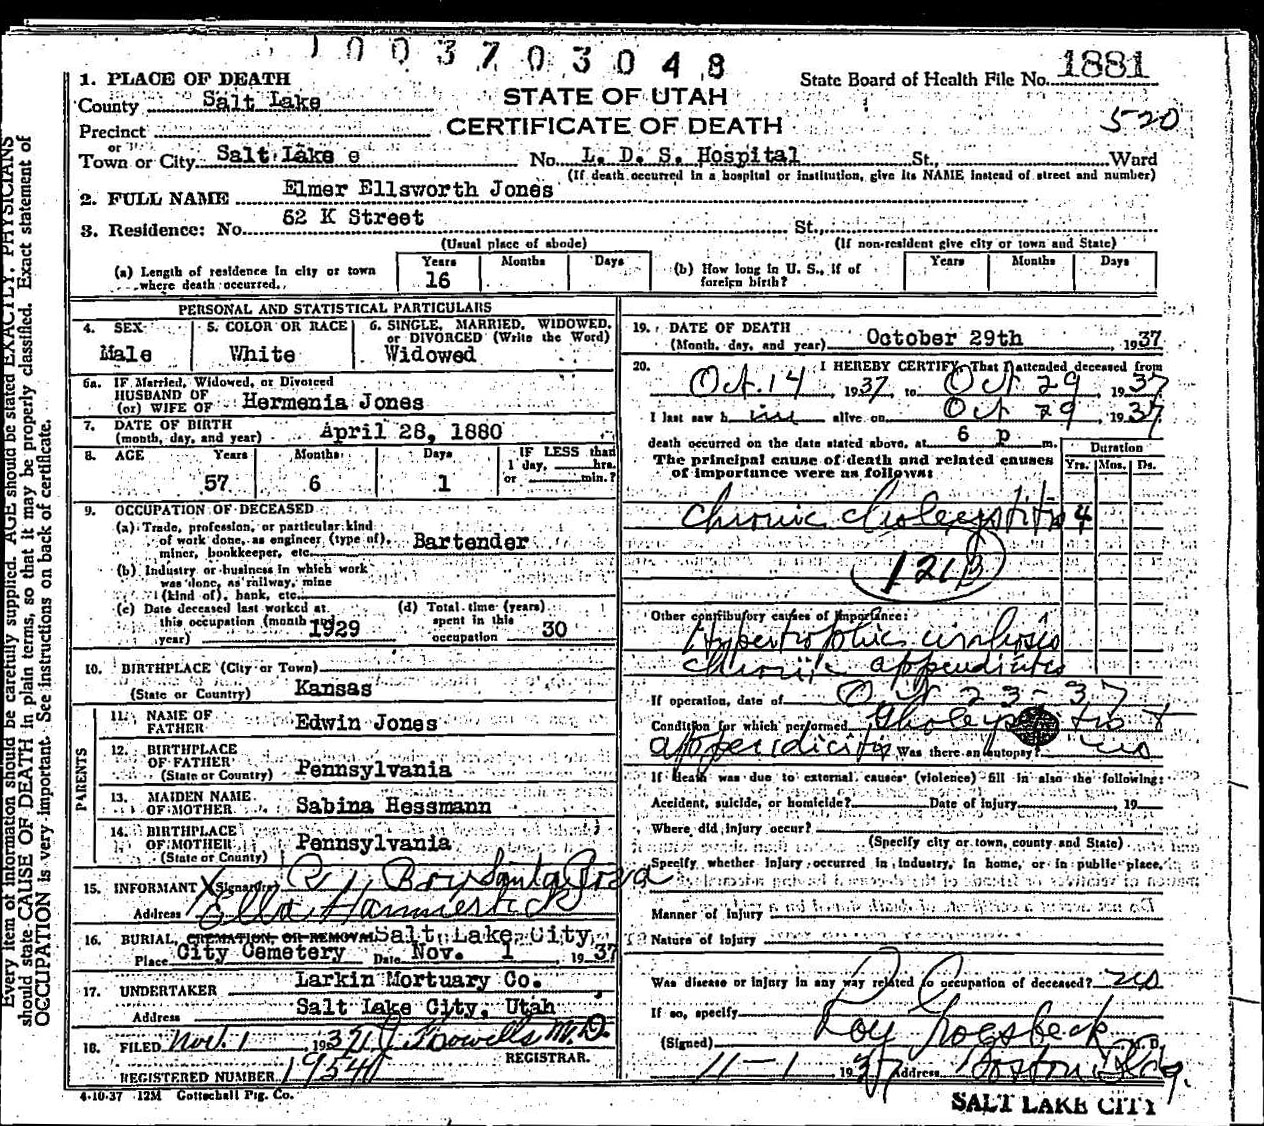 1003703048
1. PLACE OF DEATH
State Board of Health File No. 1881
County Salt Lake
STATE OF UTAH
520
Precinct
CERTIFICATE OF DEATH
or
Town or City Salt Lake c No. L. D. S. Hospital St., Ward
(If death occurred in a hospital or institution, give its NAME instead of street and number)
2. FULL NAME Elmer Ellsworth Jones
3. Residence: No. 52 K Street St.,
(Usual place of abode) (If non-resident give city or town and State)
(a) Length of residence in city or town where death occurred. Years 16 Months Days
(b) How long in U. S., if of foreign birth? Years Months Days
PERSONAL AND STATISTICAL PARTICULARS
4. SEX Male
5. COLOR OR RACE White
6. SINGLE, MARRIED, WIDOWED, or DIVORCED (Write the Word) Widowed
6a. IF Married, Widowed, or Divorced
HUSBAND OF
(or) WIFE OF Hermenia Jones
7. DATE OF BIRTH
(month, day, and year) April 28, 1880
8. AGE Years 57 Months 6 Days 1 IF LESS than 1 day, hrs. or min.?
9. OCCUPATION OF DECEASED
(a) Trade, profession, or particular kind
of work done, as engineer (type of),
miner, bookkeeper, etc. Bartender
(b) Industry or business in which work
was done, as railway, mine
(kind of), bank, etc.
(c) Date deceased last worked at
this occupation (month and
year) 1929
(d) Total time (years)
spent in this
occupation 30
10. BIRTHPLACE (City or Town)
(State or Country) Kansas
PARENTS
11. NAME OF
FATHER Edwin Jones
12. BIRTHPLACE
OF FATHER
(State or Country) Pennsylvania
13. MAIDEN NAME
OF MOTHER Sabina Hessmann
14. BIRTHPLACE
OF MOTHER
(State or Country) Pennsylvania
15. INFORMANT X (Signature)
Address Ella
16. BURIAL, CREMATION, OR REMOVAL Salt Lake City
Place City Cemetery Date Nov. 1 1937
17. UNDERTAKER Larkin Mortuary Co.
Address Salt Lake City, Utah
18. FILED Nov. 1 1937 M.D.
REGISTRAR.
REGISTERED NUMBER
4-10-37 12M Gottschall Ptg. Co.
19. DATE OF DEATH
(Month, day, and year) October 29th, 1937
20. I HEREBY CERTIFY, That I attended deceased from
Oct. 14, 1937 to Oct 29, 1937
I last saw him alive on Oct 29, 1937
death occurred on the date stated above, at 6 p m.
The principal cause of death and related causes
of importance were as follows:
Duration
Yrs. Mos. Ds.
Chronic cholecystitis 4
121B
Other contributory causes of importance:
Hypertrophic cirrhosis
chronic appendicitis
If operation, date of Oct 23-37
Condition for which performed Cholecystitis +
appendicitis Was there an autopsy? no
If death was due to external causes (violence) fill in also the following:
Accident, suicide, or homicide? Date of injury 19
Where did injury occur?
(Specify city or town, county and State)
Specify whether injury occurred in industry, in home, or in public place.
Manner of injury
Nature of injury
Was disease or injury in any way related to occupation of deceased? no
If so, specify
(Signed) Roy Groesbeck M. D.
11-1 1937 Address Boston Bldg.
SALT LAKE CITY
Every item of information should be carefully supplied. AGE should be stated EXACTLY. PHYSICIANS
should state CAUSE OF DEATH in plain terms, so that it may be properly classified. Exact statement of
OCCUPATION is very important. See instructions on back of certificate.